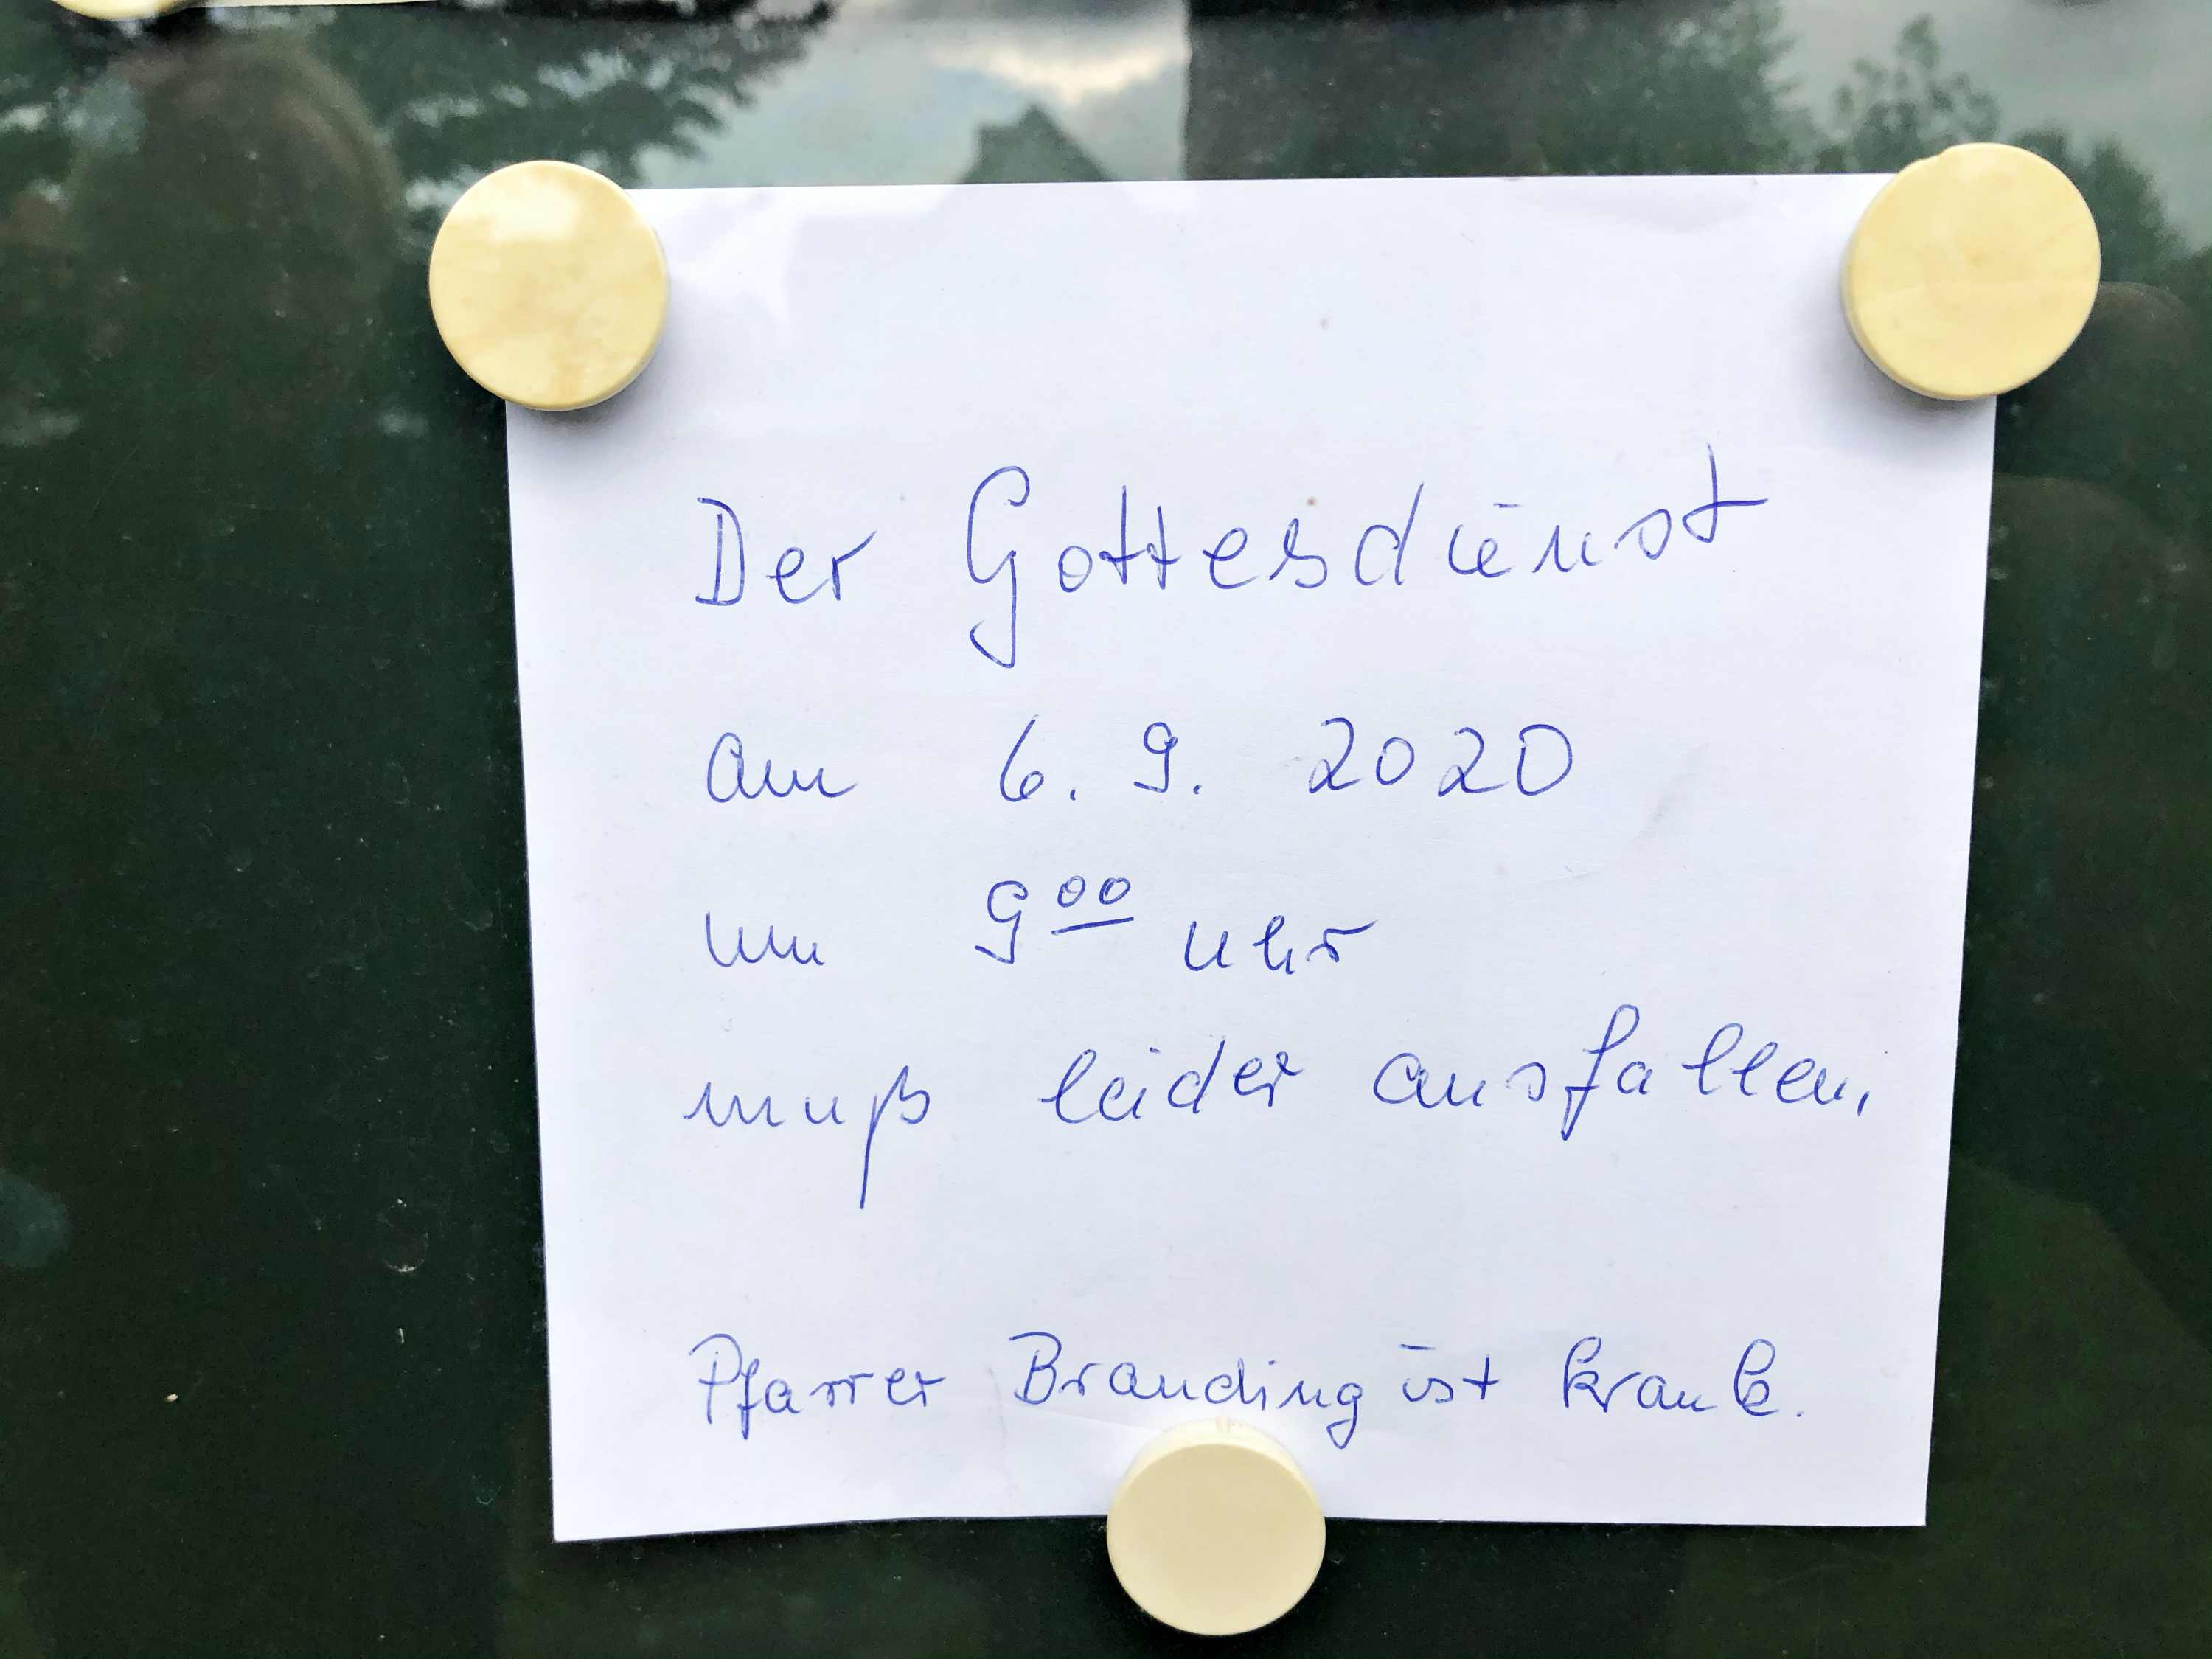 Der Gottesdienst
am 6. 9. 2020
um 9⁰⁰ uhr
muß leider ausfallen.
Pfarrer Branding ist krank.